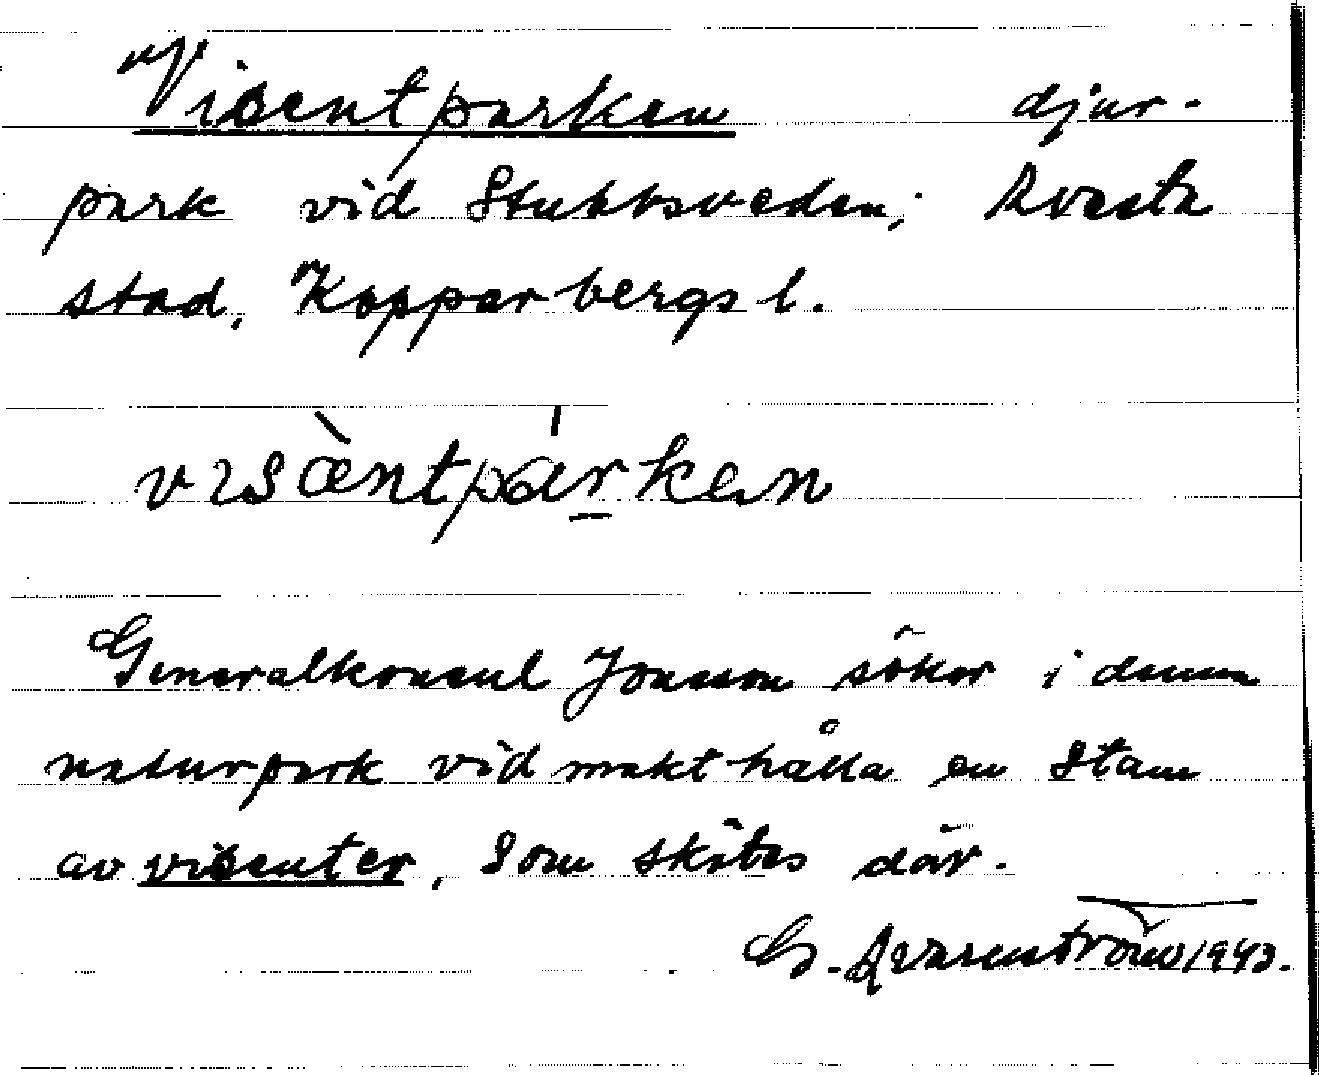 Visentparken djur-
park vid Stubbsveden; Avesta
stad, Kopparbergs l.
visæ̀ntpárken
Generalkonsul Jonsson söker i denna
naturpark vidmakthålla en stam
av visenter, som skötes där.
G. Qvarnström 1943.